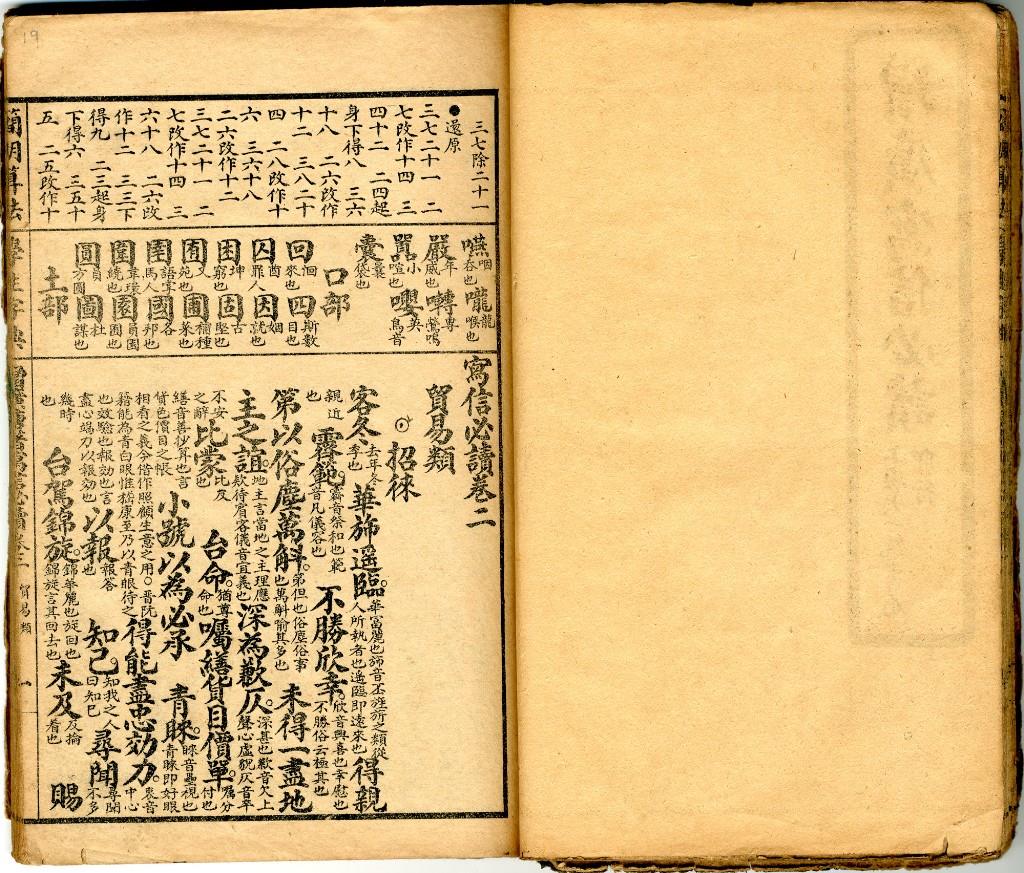 19
三七除二十一
●還原
三七二十一　二
七改作十四　三
四十二　二四起
身下得八　三六
十八　二六改作
十二　三八二十
四　二八改作十
六　三六十八
二六改作十二
三七二十一　二
七改作十四　三
六十八　二六改
作十二　三三下
得九　二三起身
下得六　三五十
五　二五改作十
簡明算法
嚥咽吞也　嚨龍喉也
嚴年威也　囀專鶯鳴
囂小喧也　嚶英鳥音
囊囊袋也
口部
回洄來也　四斯數目也
囚酋罪人　因姻就也
困坤窮也　固古堅也
囿又苑也　圃補種菜也
圉語掌馬人　國各邦也
圍韋環繞也　園員園圃也
圓員方圓　圖杜謀也
土部
學生字典
寫信必讀卷二
貿易類
招徠
客冬去年冬季也　華斾遥臨華富麗也斾音丕旌旂之類從人所執者也遥臨即遠來也　得親
親近也　霽範霽音祭和也範音凡儀容也　不勝欣幸欣音興喜也幸慰也不勝俗云極其也
第以俗塵萬斛第但也俗塵俗事也萬斛喻其多也　未得一盡地
主之誼地主言當地之主理應欵待賓客儀音宜義也　深為歉仄深甚也歉音欠上聲心虛貌仄音卒
不安之辭　比蒙比及也　台命猶尊命也　囑繕貨目價單囑分付也
繕音善抄寫也言貨色價目之帳　小號以為必承　青睞睞音查視也青睞即好眼
相看之義今借作照顧生意之用○晋阮籍能為青白眼惟嵇康至乃以青眼待之　得能盡忠効力衷音中心
也效驗也報効也言盡心竭力以報効也　以報報答也　知己知我之人曰知己　尋聞尋聞不多
幾時也　台駕錦旋錦旋錦華麗也旋回也錦旋言其回去也　未及及掄着也　賜
貿易類
一